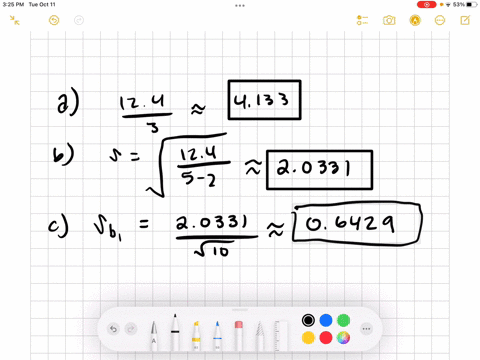 3:25 PM Tue Oct 11
53%
a) 12.4/3 ≈ 4.133
b) s = √(12.4/(5-2)) ≈ 2.0331
c) s_b₁ = 2.0331/√10 ≈ 0.6429
A